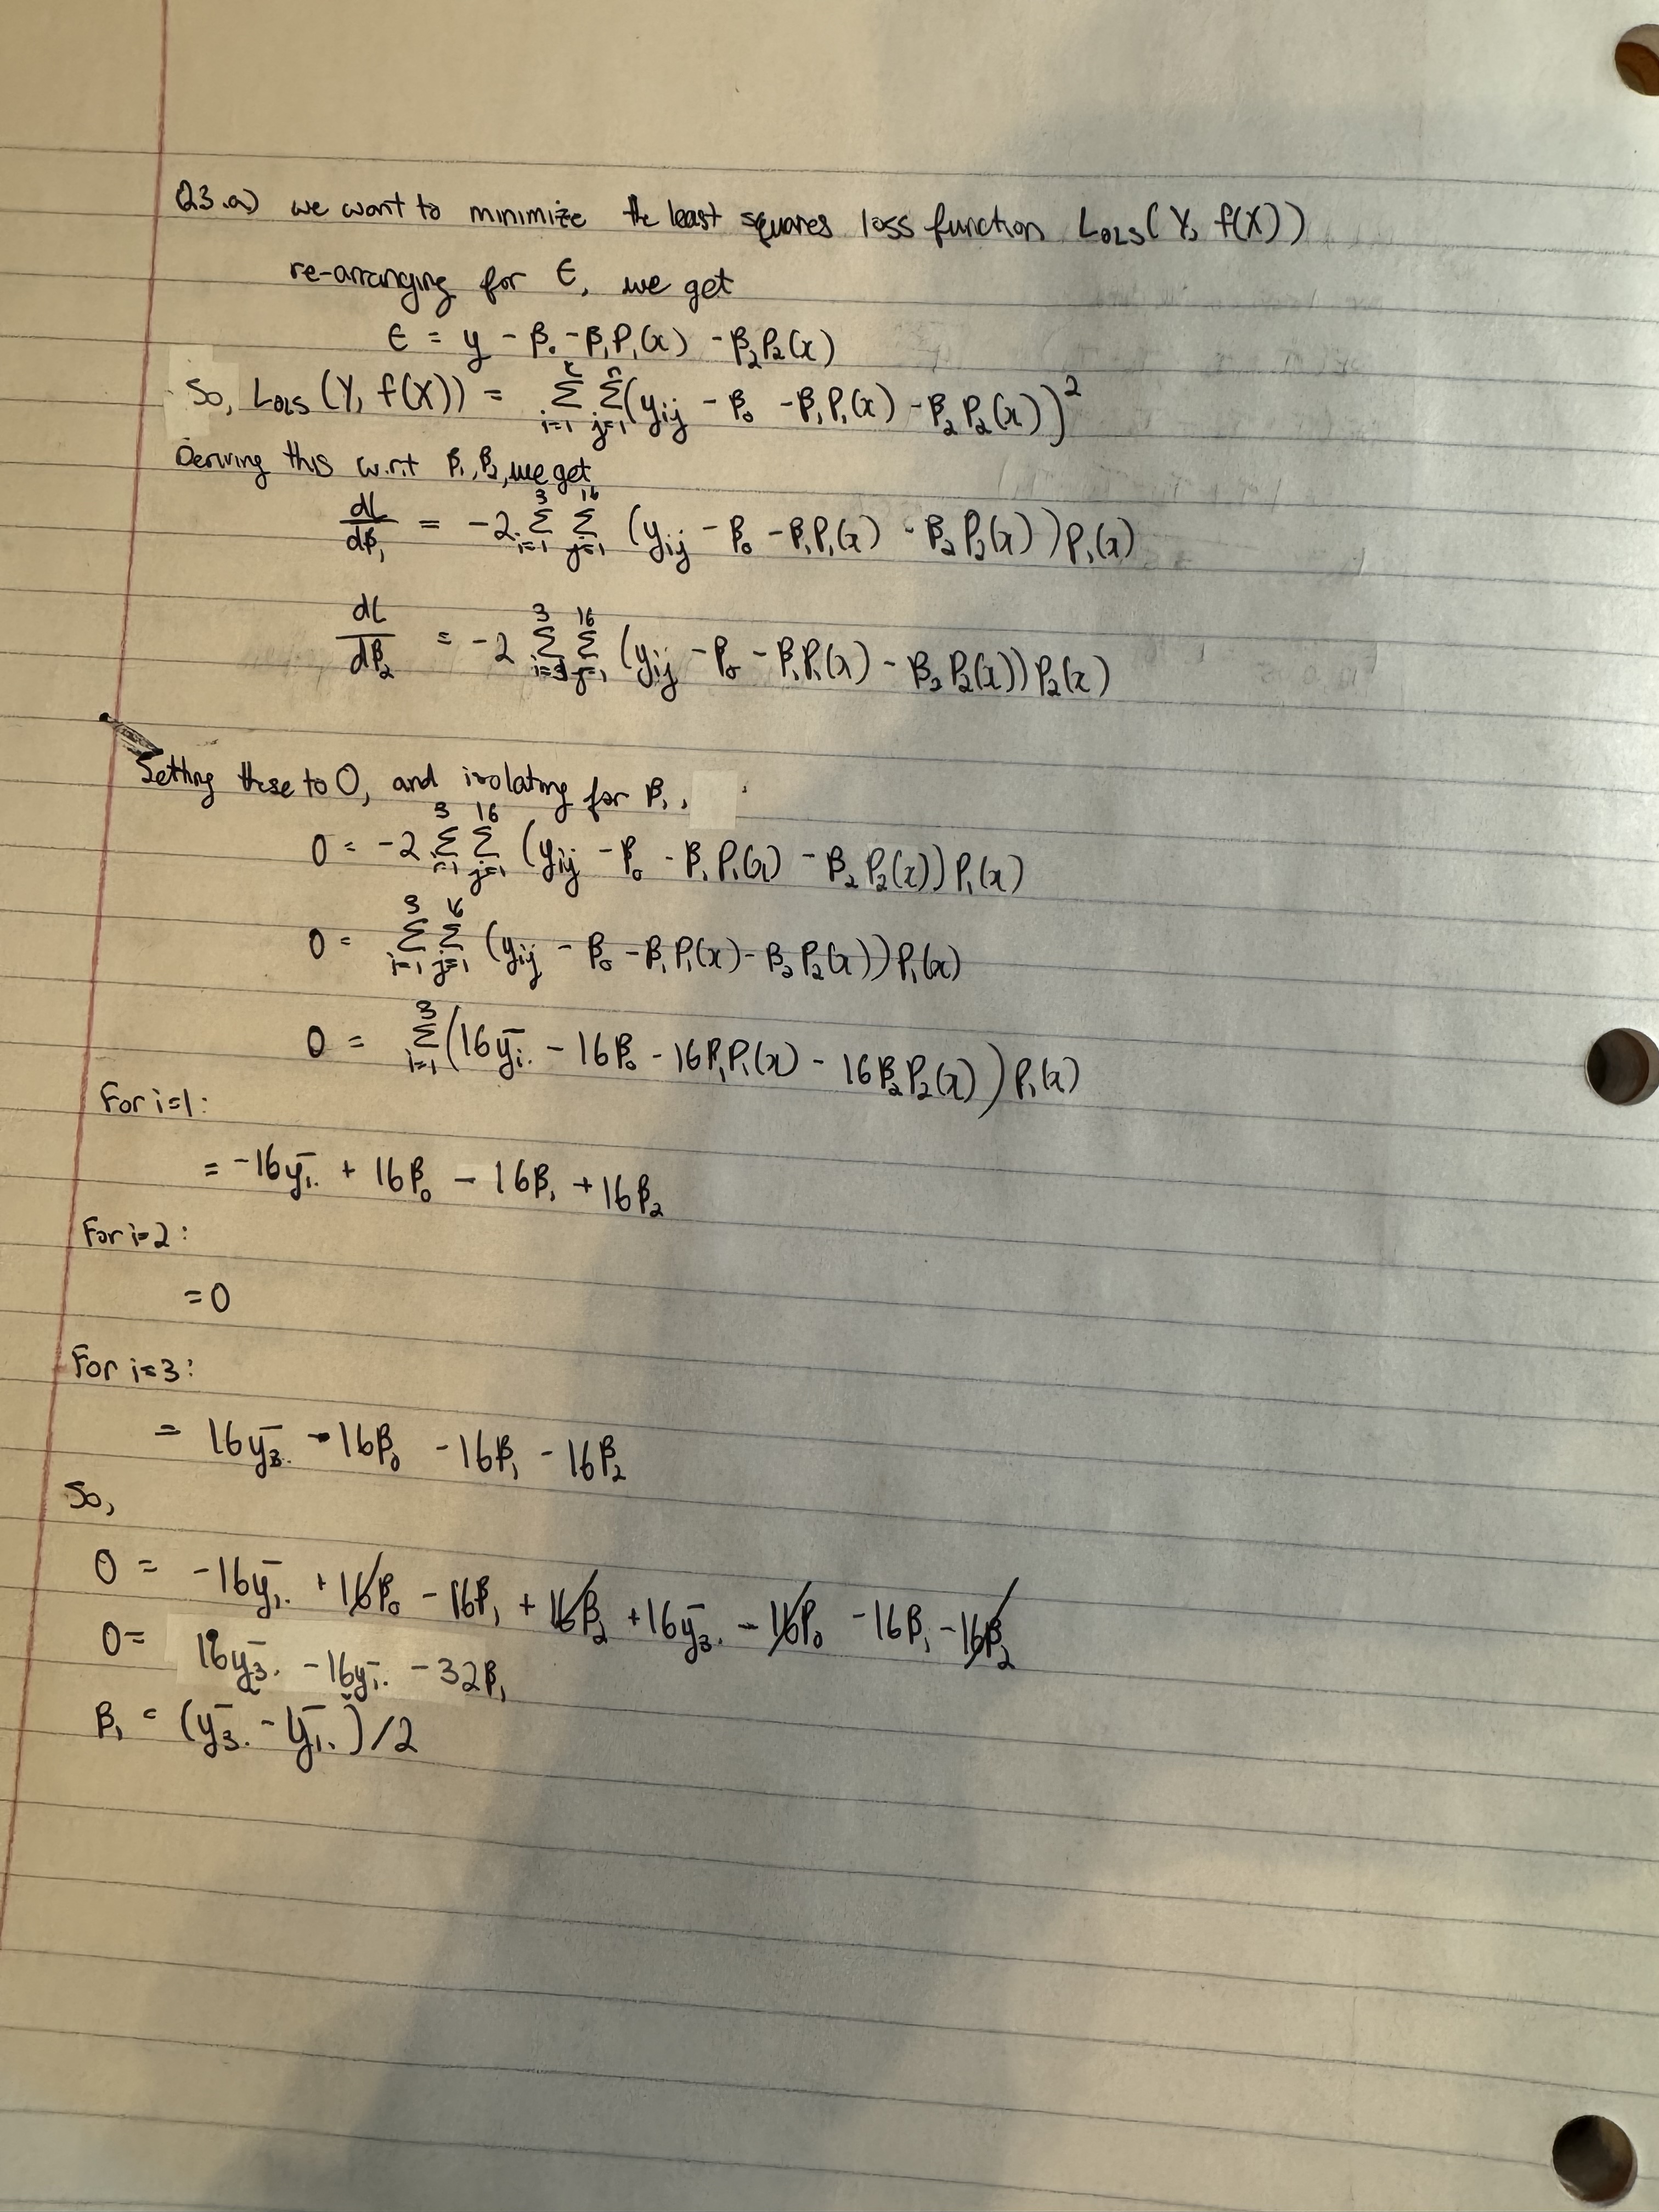 Q3.a) we want to minimize the least squares loss function L_OLS(Y, f(X))
re-arranging for ε, we get
ε = y - β₀ - β₁P₁(x) - β₂P₂(x)
So, L_OLS (Y, f(X)) = Σ_{i=1}^{k} Σ_{j=1}^{n} (y_ij - β₀ - β₁P₁(x) - β₂P₂(x))²
Deriving this w.r.t β₁, β₂, we get
dL/dβ₁ = -2 Σ_{i=1}^{3} Σ_{j=1}^{16} (y_ij - β₀ - β₁P₁(x) - β₂P₂(x))P₁(x)
dL/dβ₂ = -2 Σ_{i=1}^{3} Σ_{j=1}^{16} (y_ij - β₀ - β₁P₁(x) - β₂P₂(x))P₂(x)
Setting these to 0, and isolating for β₁,
0 = -2 Σ_{i=1}^{3} Σ_{j=1}^{16} (y_ij - β₀ - β₁P₁(x) - β₂P₂(x))P₁(x)
0 = Σ_{i=1}^{3} Σ_{j=1}^{16} (y_ij - β₀ - β₁P₁(x) - β₂P₂(x))P₁(x)
0 = Σ_{i=1}^{3} (16ȳ_i. - 16β₀ - 16β₁P₁(x) - 16β₂P₂(x))P₁(x)
For i=1:
= -16ȳ₁. + 16β₀ - 16β₁ + 16β₂
For i=2:
= 0
For i=3:
= 16ȳ₃. - 16β₀ - 16β₁ - 16β₂
So,
0 = -16ȳ₁. + 16β₀ - 16β₁ + 16β₂ + 16ȳ₃. - 16β₀ - 16β₁ - 16β₂
0 = 16ȳ₃. - 16ȳ₁. - 32β₁
β₁ = (ȳ₃. - ȳ₁.)/2